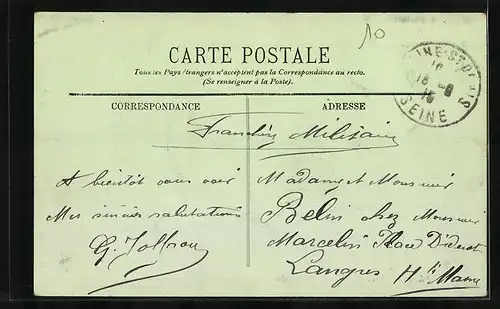 10
CARTE POSTALE
Tous les Pays étrangers n'acceptent pas la Correspondance au recto.
(Se renseigner à la Poste).
CORRESPONDANCE
ADRESSE
SEINE
Franchise Militaire
A bientôt vous voir
Mes sincères salutations
Madame et Monsieur
Belin chez Monsieur
Marcelin Place Diderot
Langres Hte Marne